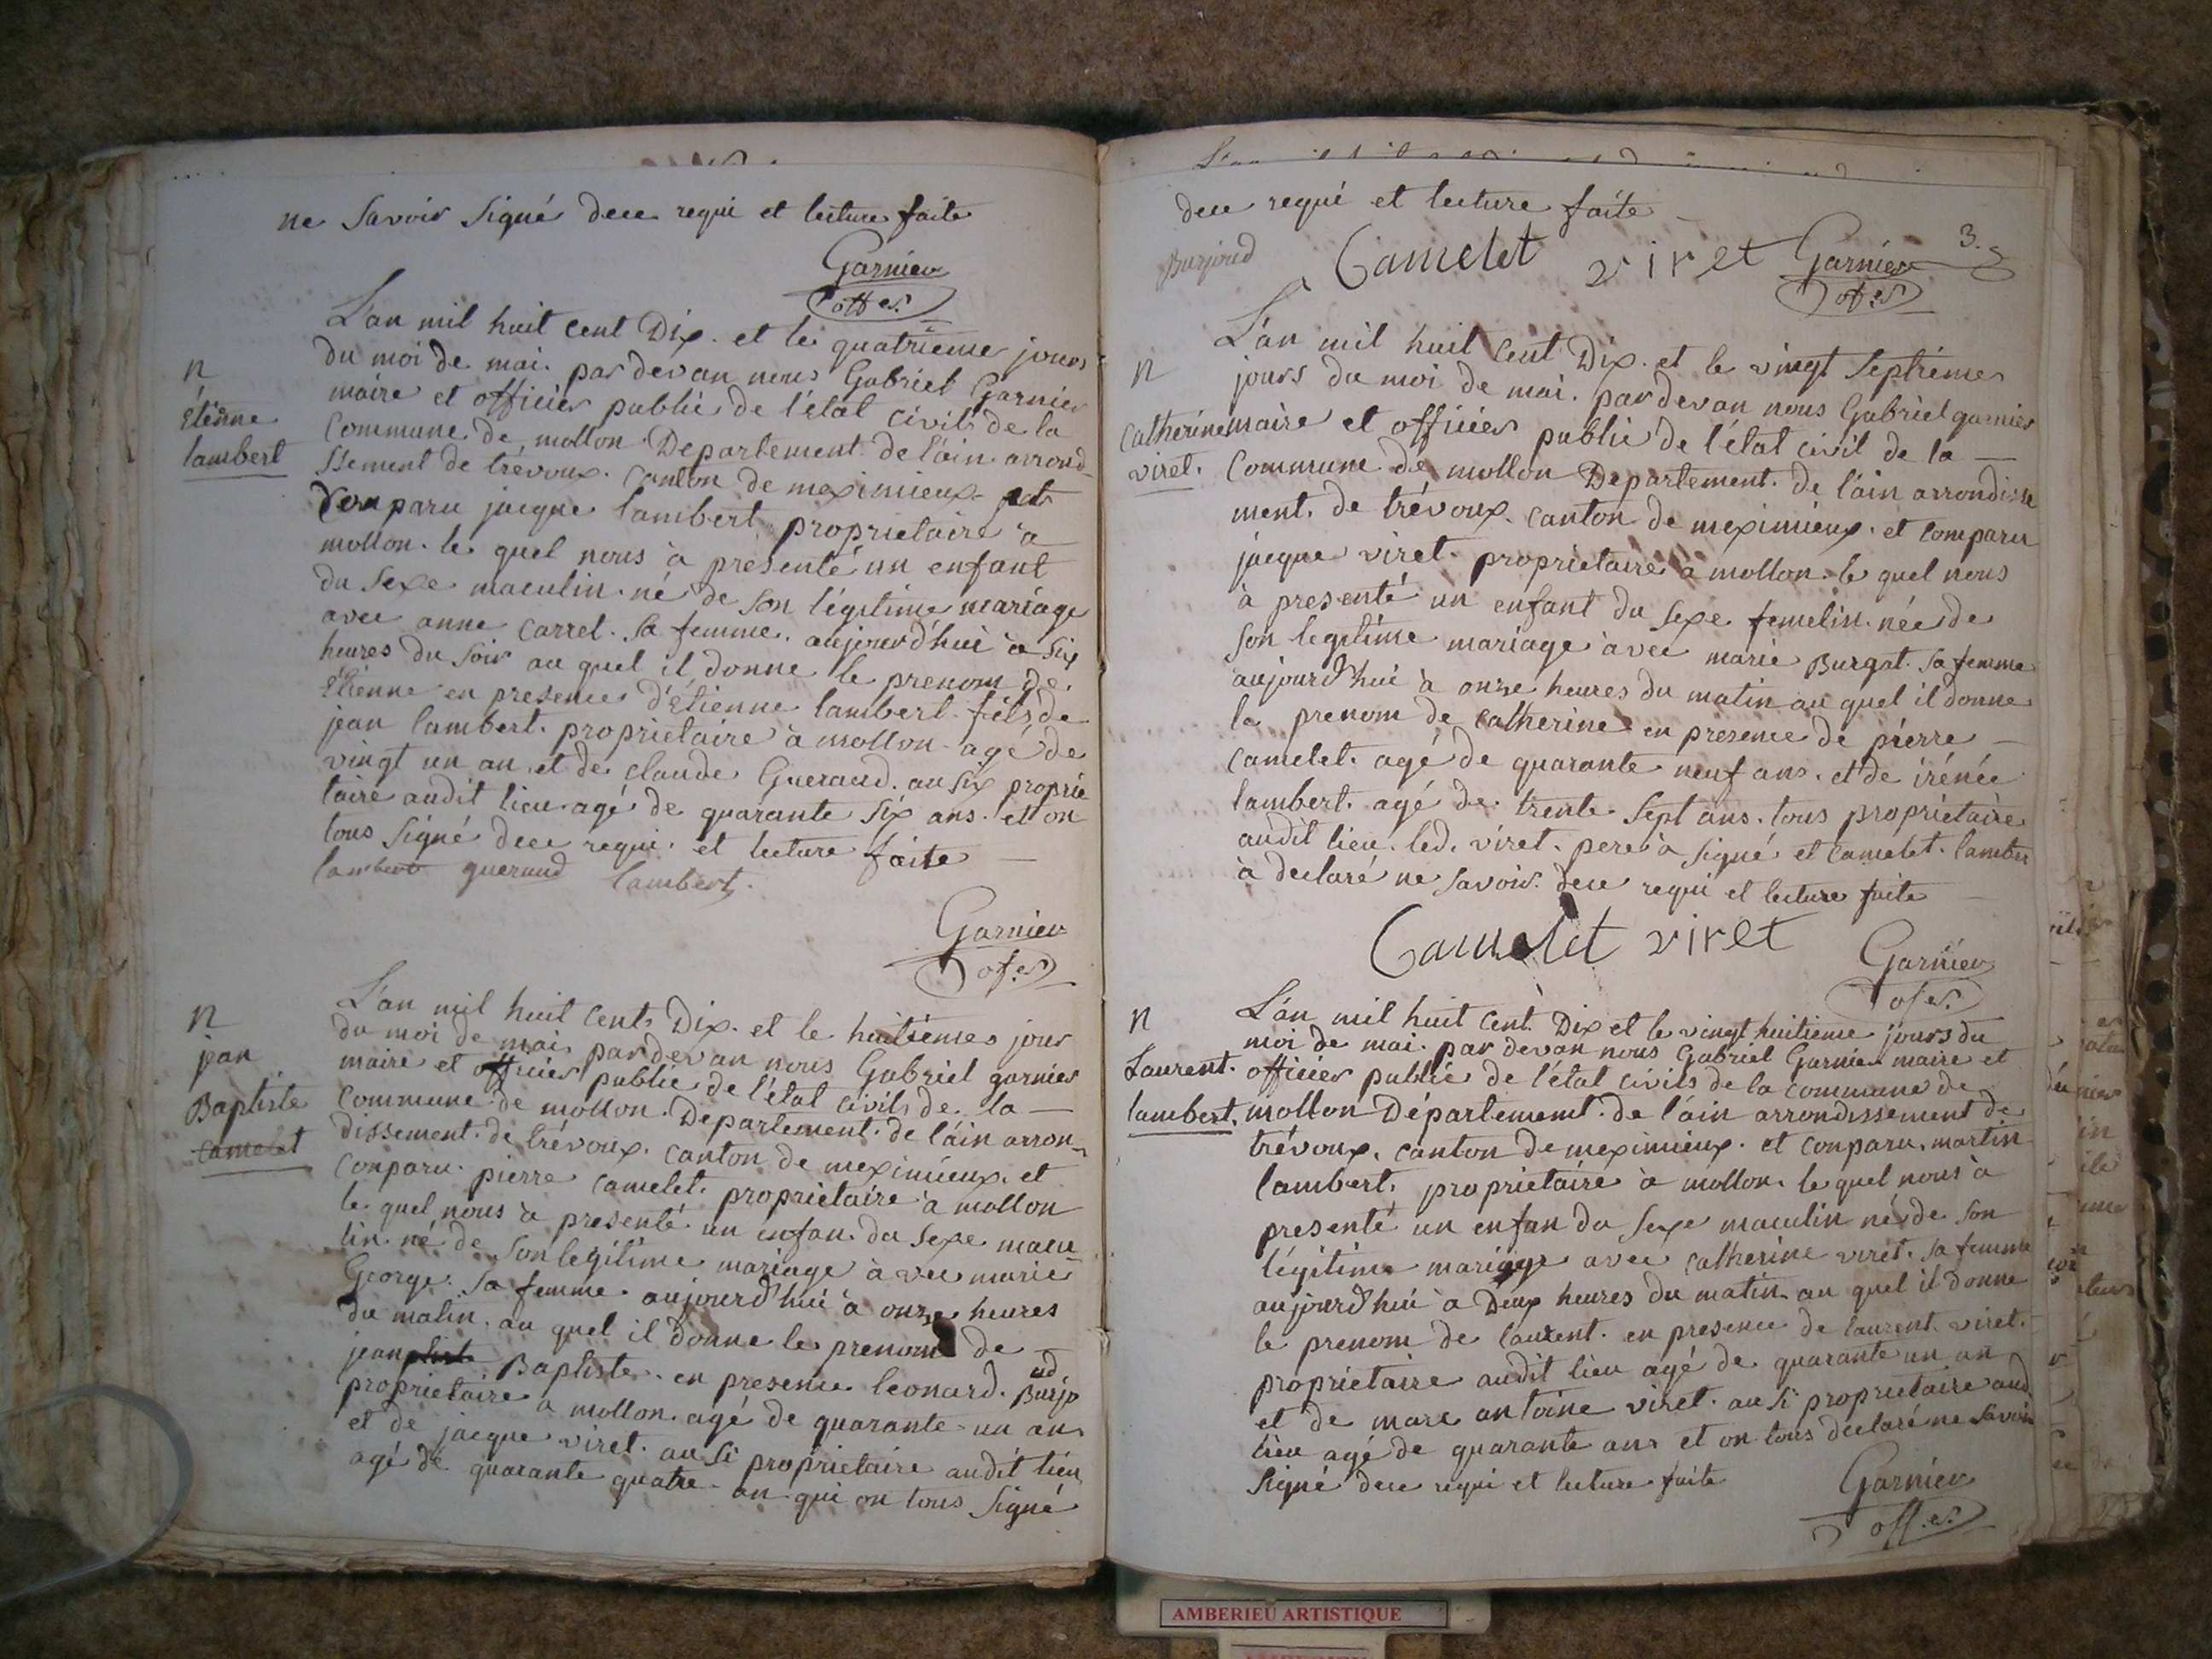 ne Savoir Signé dece requi et lecture faite
Garnier
offes.
L'an mil huit cent Dix. et le quatrième jours
n
du moi de mai. par devan nous Gabriel Garnier
maire et officier public de l'état civils de la
Etienne
commune de mollon. Departement de l'ain arrond-
lambert
ssement de trévoux. canton de meximieux. et
Conparu jacque lambert proprietaire à
mollon. le quel nous à presenté un enfant
du Sexe maculin. né de Son légitime mariage
avec anne carrel. Sa femme. aujourd'hui à Six
heures du Soir au quel il donne le prenom de
Etienne en presence d'Etienne lambert fils de
jean lambert. proprietaire à mollon agé de
vingt un an et de claude Gueraud. au six proprie
taire audit lieu agé de quarante Six ans. et on
tous Signé dece requi. et lecture faite
lambert gueraud lambert.
Garnier
ofes
L'an mil huit cent Dix. et le huitièmes jour
n
du moi de mai. par devan nous Gabriel garnier
jean
maire et officier public de l'état civils de la
Baptiste
commune de mollon. Departement. de l'ain arron-
camelet
dissement. de trévoux. canton de meximieux. et
conparu. pierre camelet. proprietaire à mollon
le quel nous à presenté un enfan. du Sexe macu-
lin. né de Son legitime mariage à vec marie
George. Sa femme. aujourd'hui à onze heures
du matin. au quel il donne le prenom de
jean Baptiste. en presence leonard. Burjo
ud
proprietaire à mollon. agé de quarante un an
et de jacque viret. au Si proprietaire audit lieu
agé de quarante quatre an qui on tous Signé
dece requi et lecture faite
Burjoud Camelet viret Garnier 3.
ofes
L'an mil huit cent Dix. et le vingt Septiemes
n
jours du moi de mai. par devan nous Gabriel garnier
catherine maire et officier public de l'état civil de la
viret. commune de mollon Departement. de l'ain arrondisse
ment. de trévoux. canton de meximieux. et comparu
jacque viret. proprietaire à mollon. le quel nous
à presenté un enfant du Sexe femelin. née de
Son legitime mariage à vec marie Burgat. Sa femme
aujourd'hui à onze heures du matin au quel il donne
la prenom de catherine en presence de pierre
camelet. agé de quarante neuf ans. et de irénée
lambert. agé de trente Sept ans. tous proprietaire
audit lieu. led. viret. pere à Signé et camelet. lamber
à declaré ne Savoir. dece requi et lecture faite
Camelet viret
Garnier
ofes.
L'an mil huit cent Dix et le vingt huitieme jours du
n
moi de mai. par devan nous Gabriel Garnier maire et
Laurent. officier public de l'état civils de la commune de
lambert. mollon Département. de l'ain arrondissement de
trévoux. canton de meximieux. et conparu. martin
lambert. proprietaire à mollon. le quel nous à
presenté un enfan du Sexe maculin né de Son
légitime mariage avec catherine viret. Sa femme
aujourd'hui à Deux heures du matin au quel il donne
le prenom de laurent. en presence de laurent. viret.
proprietaire audit lieu agé de quarante un an
et de marc antoine viret. au Si proprietaire aud
lieu agé de quarante ans et on tous declaré ne Savoir
Signé dece requi et lecture faite
Garnier
off.es.
AMBERIEU ARTISTIQUE